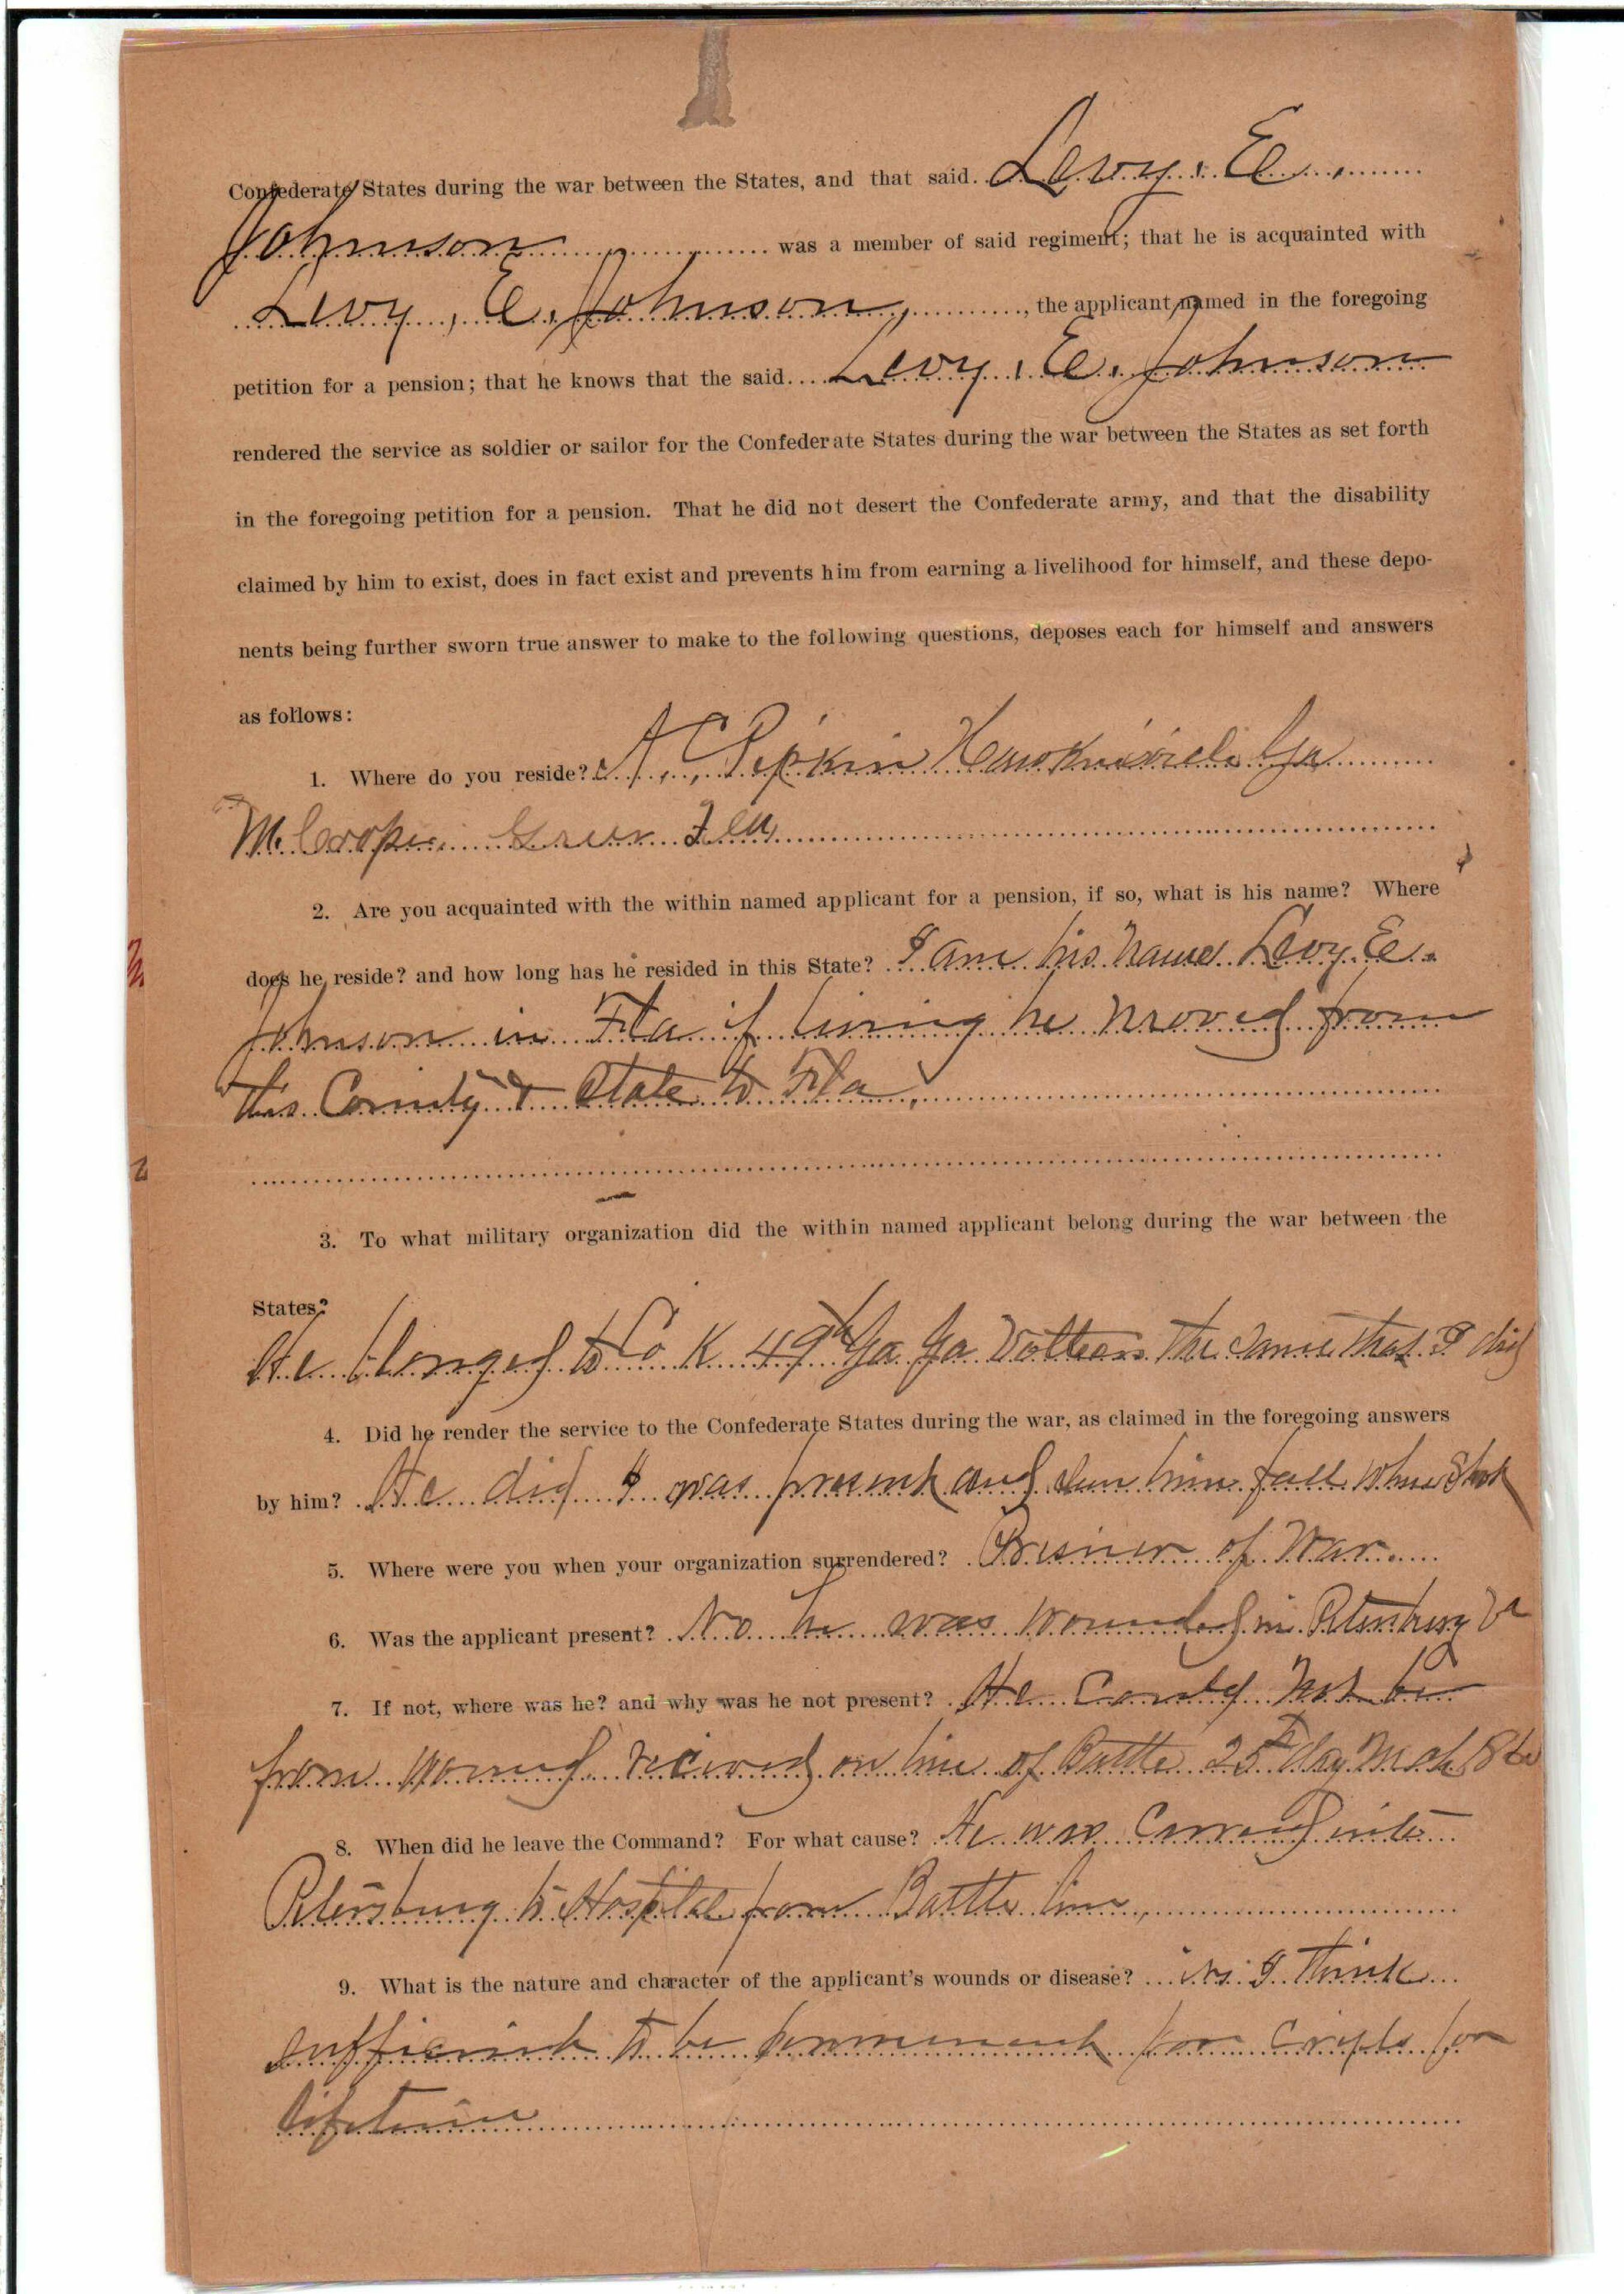 Confederate States during the war between the States, and that said Levy. E.
Johnson was a member of said regiment; that he is acquainted with
Levy, E. Johnson, the applicant named in the foregoing
petition for a pension; that he knows that the said Levy. E. Johnson
rendered the service as soldier or sailor for the Confederate States during the war between the States as set forth
in the foregoing petition for a pension. That he did not desert the Confederate army, and that the disability
claimed by him to exist, does in fact exist and prevents him from earning a livelihood for himself, and these depo-
nents being further sworn true answer to make to the following questions, deposes each for himself and answers
as follows:
1. Where do you reside? A. C. Pipkin Hawkinsville Ga
M. Fla
2. Are you acquainted with the within named applicant for a pension, if so, what is his name? Where
does he reside? and how long has he resided in this State? I am his name Levy E.
Johnson in Fla if living he moved from
this County & State to Fla
3. To what military organization did the within named applicant belong during the war between the
States?
He blonged to Co K 49th Ga Ga the same that I did
4. Did he render the service to the Confederate States during the war, as claimed in the foregoing answers
by him? He did I was present and him fall when Shot
5. Where were you when your organization surrendered? Prisner of War
6. Was the applicant present? No he was wounded in Petersburg Va
7. If not, where was he? and why was he not present? He could not be
from wound received on line of Battle 25th day Mch
8. When did he leave the Command? For what cause? He was Carried into
Petersburg to Hospital from Battle line
9. What is the nature and character of the applicant's wounds or disease? I Think
sufficient to be for criple for
lifetime